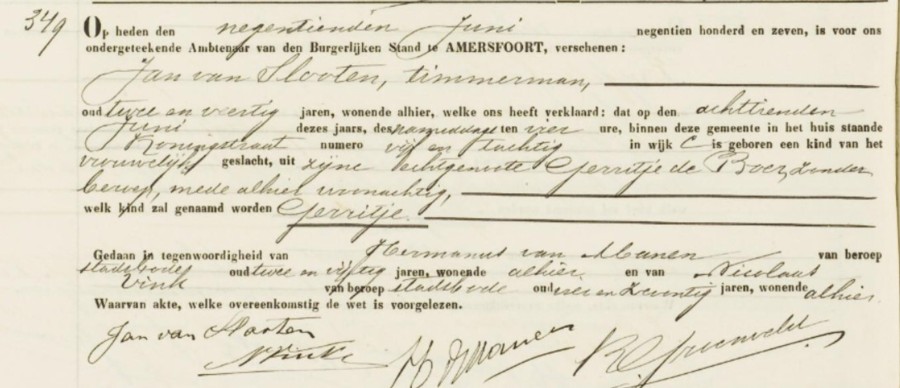 349
Op heden den negentienden Juni negentien honderd en zeven, is voor ons
ondergeteekende Ambtenaar van den Burgerlijken Stand te AMERSFOORT, verschenen:
Jan van Slooten, timmerman,
oud twee en veertig jaren, wonende alhier, welke ons heeft verklaard: dat op den achttienden
Juni dezes jaars, des namiddags ten vier ure, binnen deze gemeente in het huis staande
Koningstraat numero vijf en tachtig in wijk C is geboren een kind van het
vrouwelijk geslacht, uit zijne echtgenoote Gerritje de Boer, zonder
beroep, mede alhier woonachtig,
welk kind zal genaamd worden Gerritje.
Gedaan in tegenwoordigheid van Hermanus van Manen van beroep
stadsbode oud twee en vijftig jaren, wonende alhier en van Nicolaas
Vink van beroep stadsbode oud en zeventig jaren, wonende alhier.
Waarvan akte, welke overeenkomstig de wet is voorgelezen.
Jan van Slooten
N Vink H v Manen